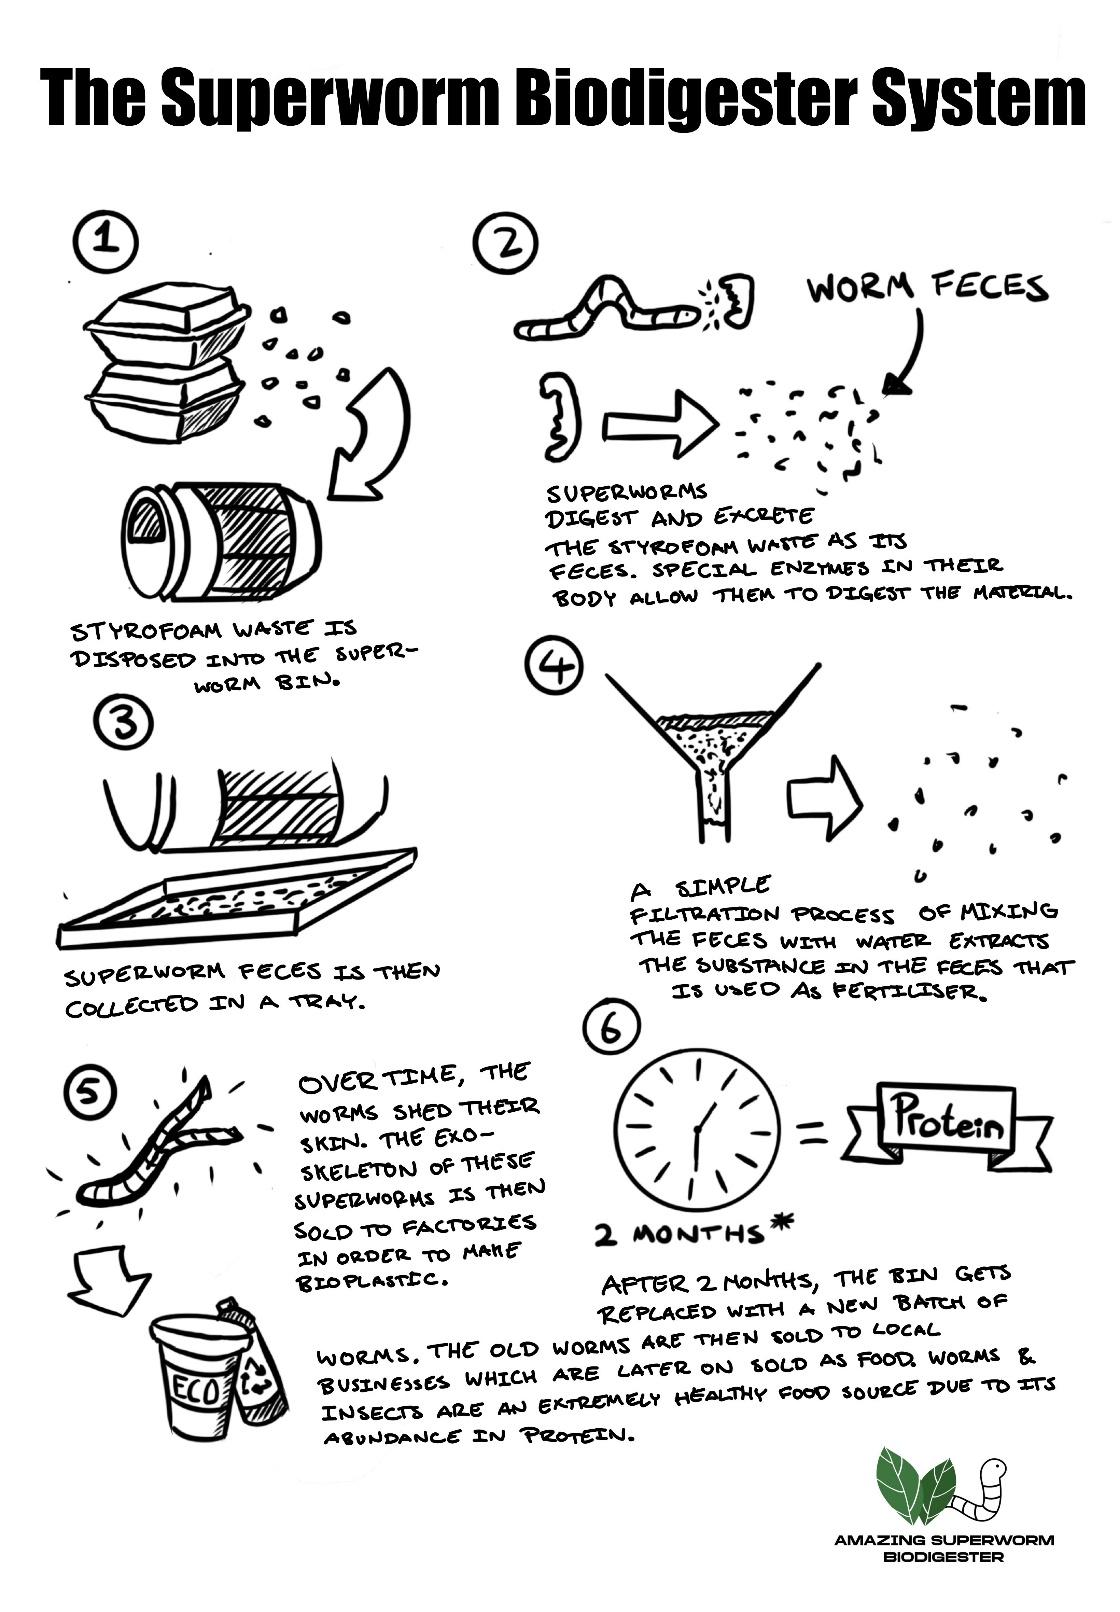 The Superworm Biodigester System
1
STYROFOAM WASTE IS
DISPOSED INTO THE SUPER-
WORM BIN.
2
WORM FECES
SUPERWORMS
DIGEST AND EXCRETE
THE STYROFOAM WASTE AS ITS
FECES. SPECIAL ENZYMES IN THEIR
BODY ALLOW THEM TO DIGEST THE MATERIAL.
3
SUPERWORM FECES IS THEN
COLLECTED IN A TRAY.
4
A SIMPLE
FILTRATION PROCESS OF MIXING
THE FECES WITH WATER EXTRACTS
THE SUBSTANCE IN THE FECES THAT
IS USED AS FERTILISER.
5
OVER TIME, THE
WORMS SHED THEIR
SKIN. THE EXO-
SKELETON OF THESE
SUPERWORMS IS THEN
SOLD TO FACTORIES
IN ORDER TO MAKE
BIOPLASTIC.
ECO
6
=
Protein
2 MONTHS*
AFTER 2 MONTHS, THE BIN GETS
REPLACED WITH A NEW BATCH OF
WORMS. THE OLD WORMS ARE THEN SOLD TO LOCAL
BUSINESSES WHICH ARE LATER ON SOLD AS FOOD. WORMS &
INSECTS ARE AN EXTREMELY HEALTHY FOOD SOURCE DUE TO ITS
ABUNDANCE IN PROTEIN.
AMAZING SUPERWORM
BIODIGESTER